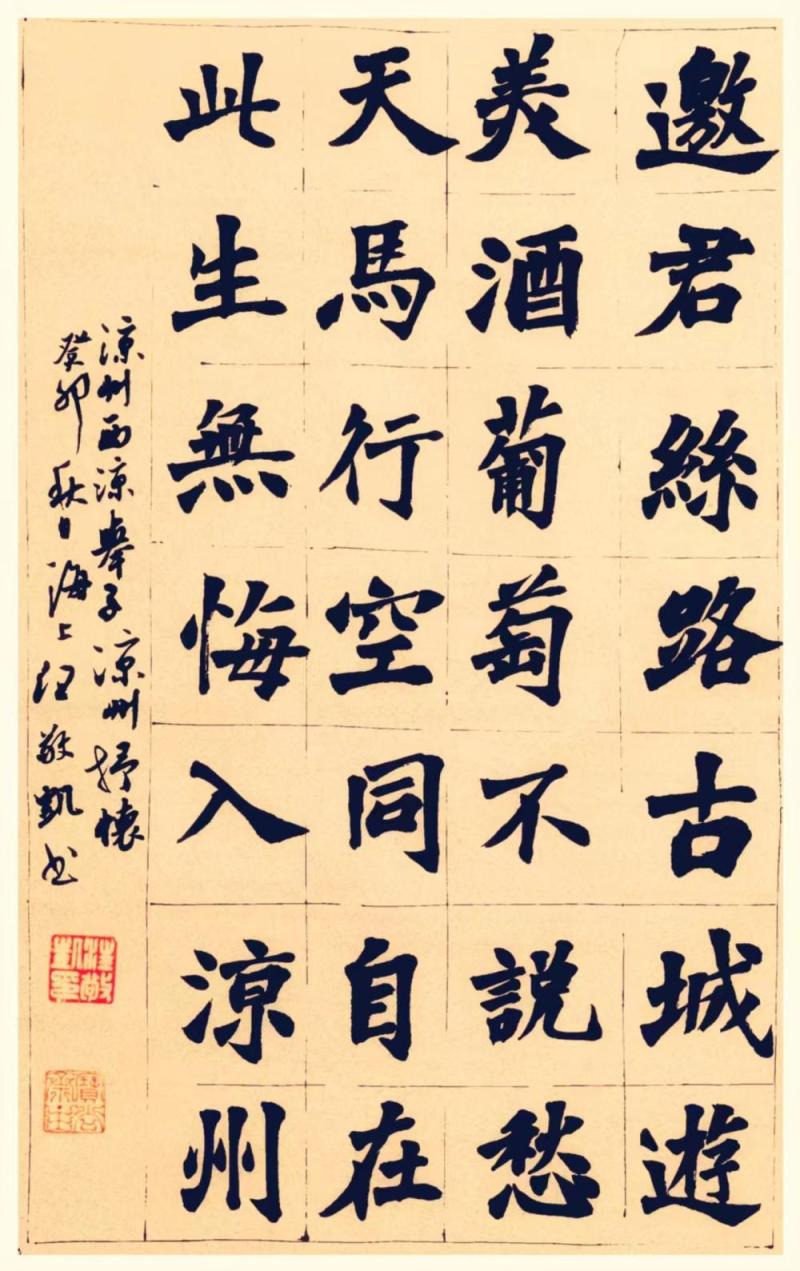 邀君絲路古城遊
美酒葡萄不説愁
天馬行空同自在
此生無悔入涼州
涼州西涼舉子涼州抒懷
癸卯秋日海上汪敬凱书